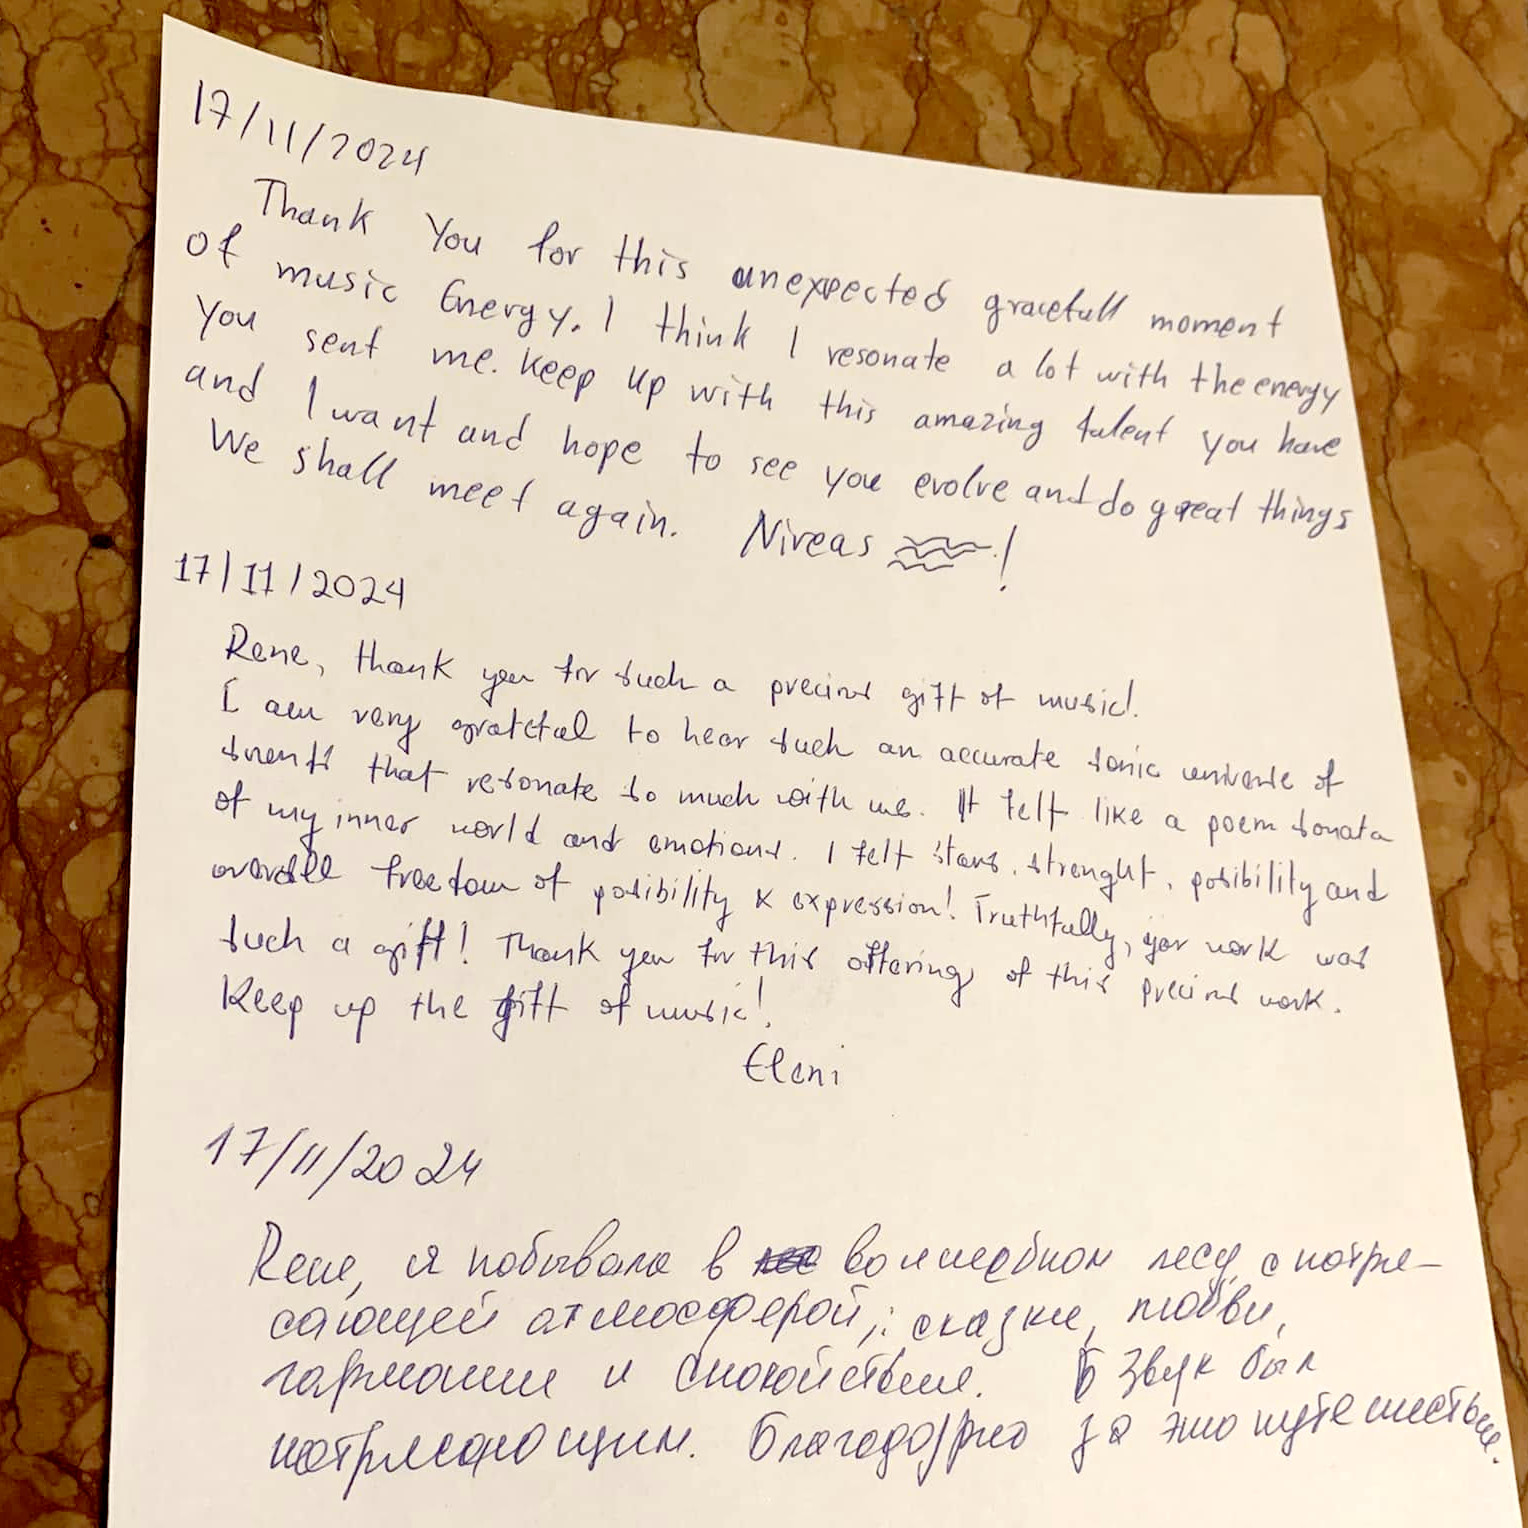 17/11/2024
Thank You for this unexpected gracefull moment
of music Energy. I think I resonate a lot with the energy
you sent me. Keep up with this amazing talent you have
and I want and hope to see you evolve and do great things
We shall meet again. Nireas !
17/11/2024
Rene, thank you for such a precious gift of music!
I am very grateful to hear such an accurate sonic universe of
that resonate so much with me. It felt like a poem sonata
of my inner world and emotions. I felt stars, strenght, posibility and
overall freedom of posibility & expression! Truthfully, your work was
such a gift! Thank you for this offering of this precious work.
Keep up the gift of music!
Eleni
17/11/2024
Rene, я побывала в волшебном лесу с потря-
сающей атмосферой,: сказки, любви,
гармонии и спокойствия. Звук был
потрясающим. Благодарю за это путешествие.